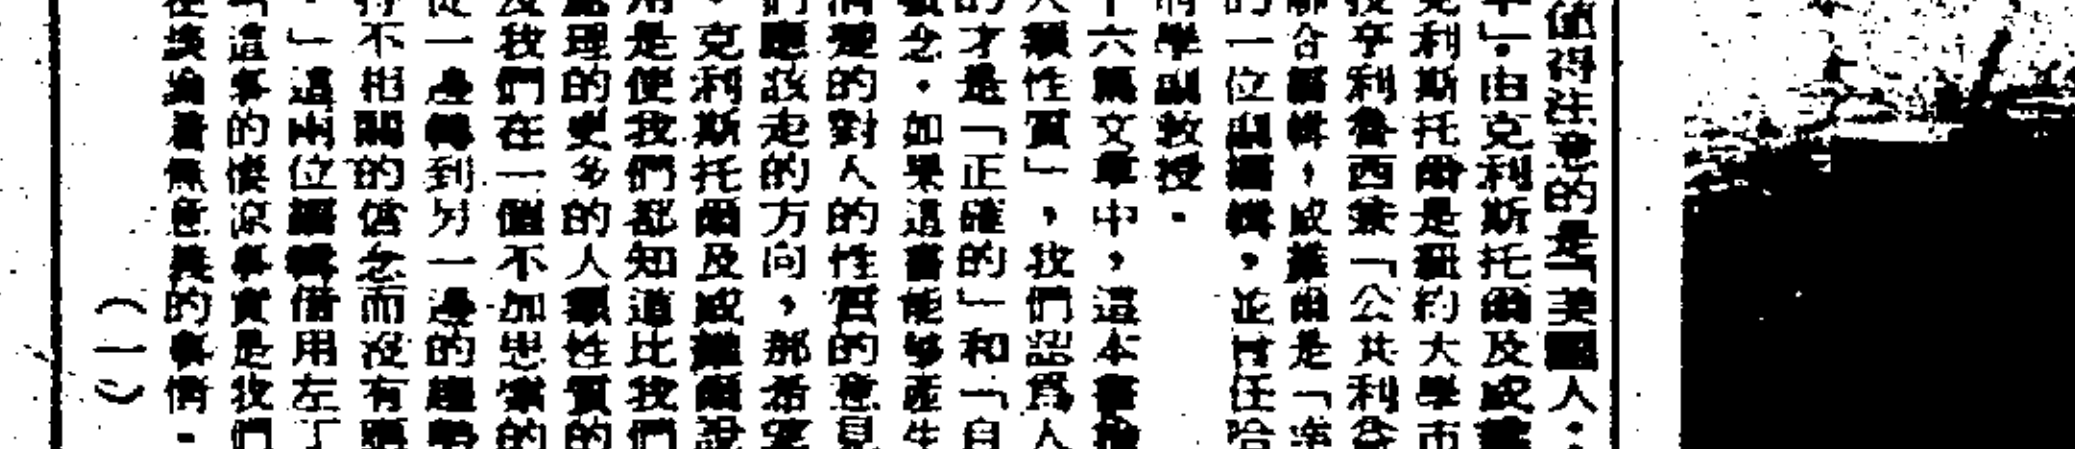 值得注意的是「美國人：
年」。由克利斯托爾及威
克利斯托爾是紐約大學市
授亨利魯西萊「公共利益
聯合編輯，威爾是「
的一位副編輯，並曾任哈
府學副教授。
十六篇文章中，這本書
人類性質」，我們認爲人
的才是「正確的」和「自
念。如果這書能够產生
清楚的對人的性質的意見
們應該走的方向，那希望
。克利斯托爾及威爾說
用是使我們都知道比我們
處理的更多的人類性質的
及我們在一個不加思索的
從一邊轉到另一邊的趨勢
得不相關的信念而沒有
。」這兩位編輯借用左丁
這事的悽涼事實是我們
在談論着無意義的事情。
（一）